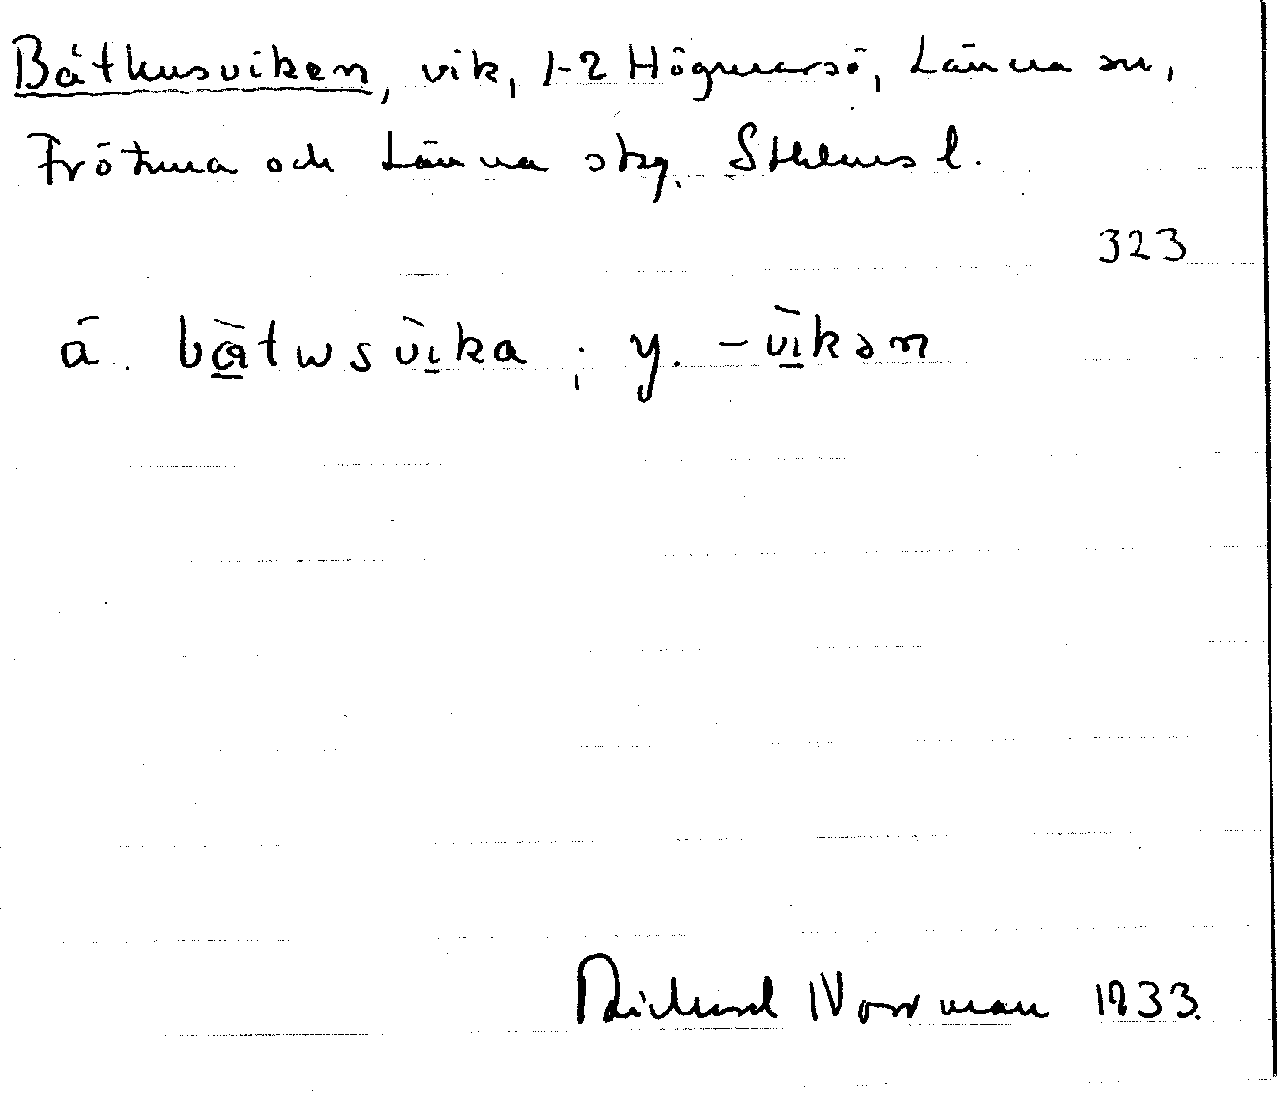 Båthusviken, vik, 1-2 Högmarsö, Länna sn,
Frötuna och Länna skg. Sthlms l.
323
ä. bå̀tωsv̀ika ; y. -v̀ikən
Richard Norrman 1933.